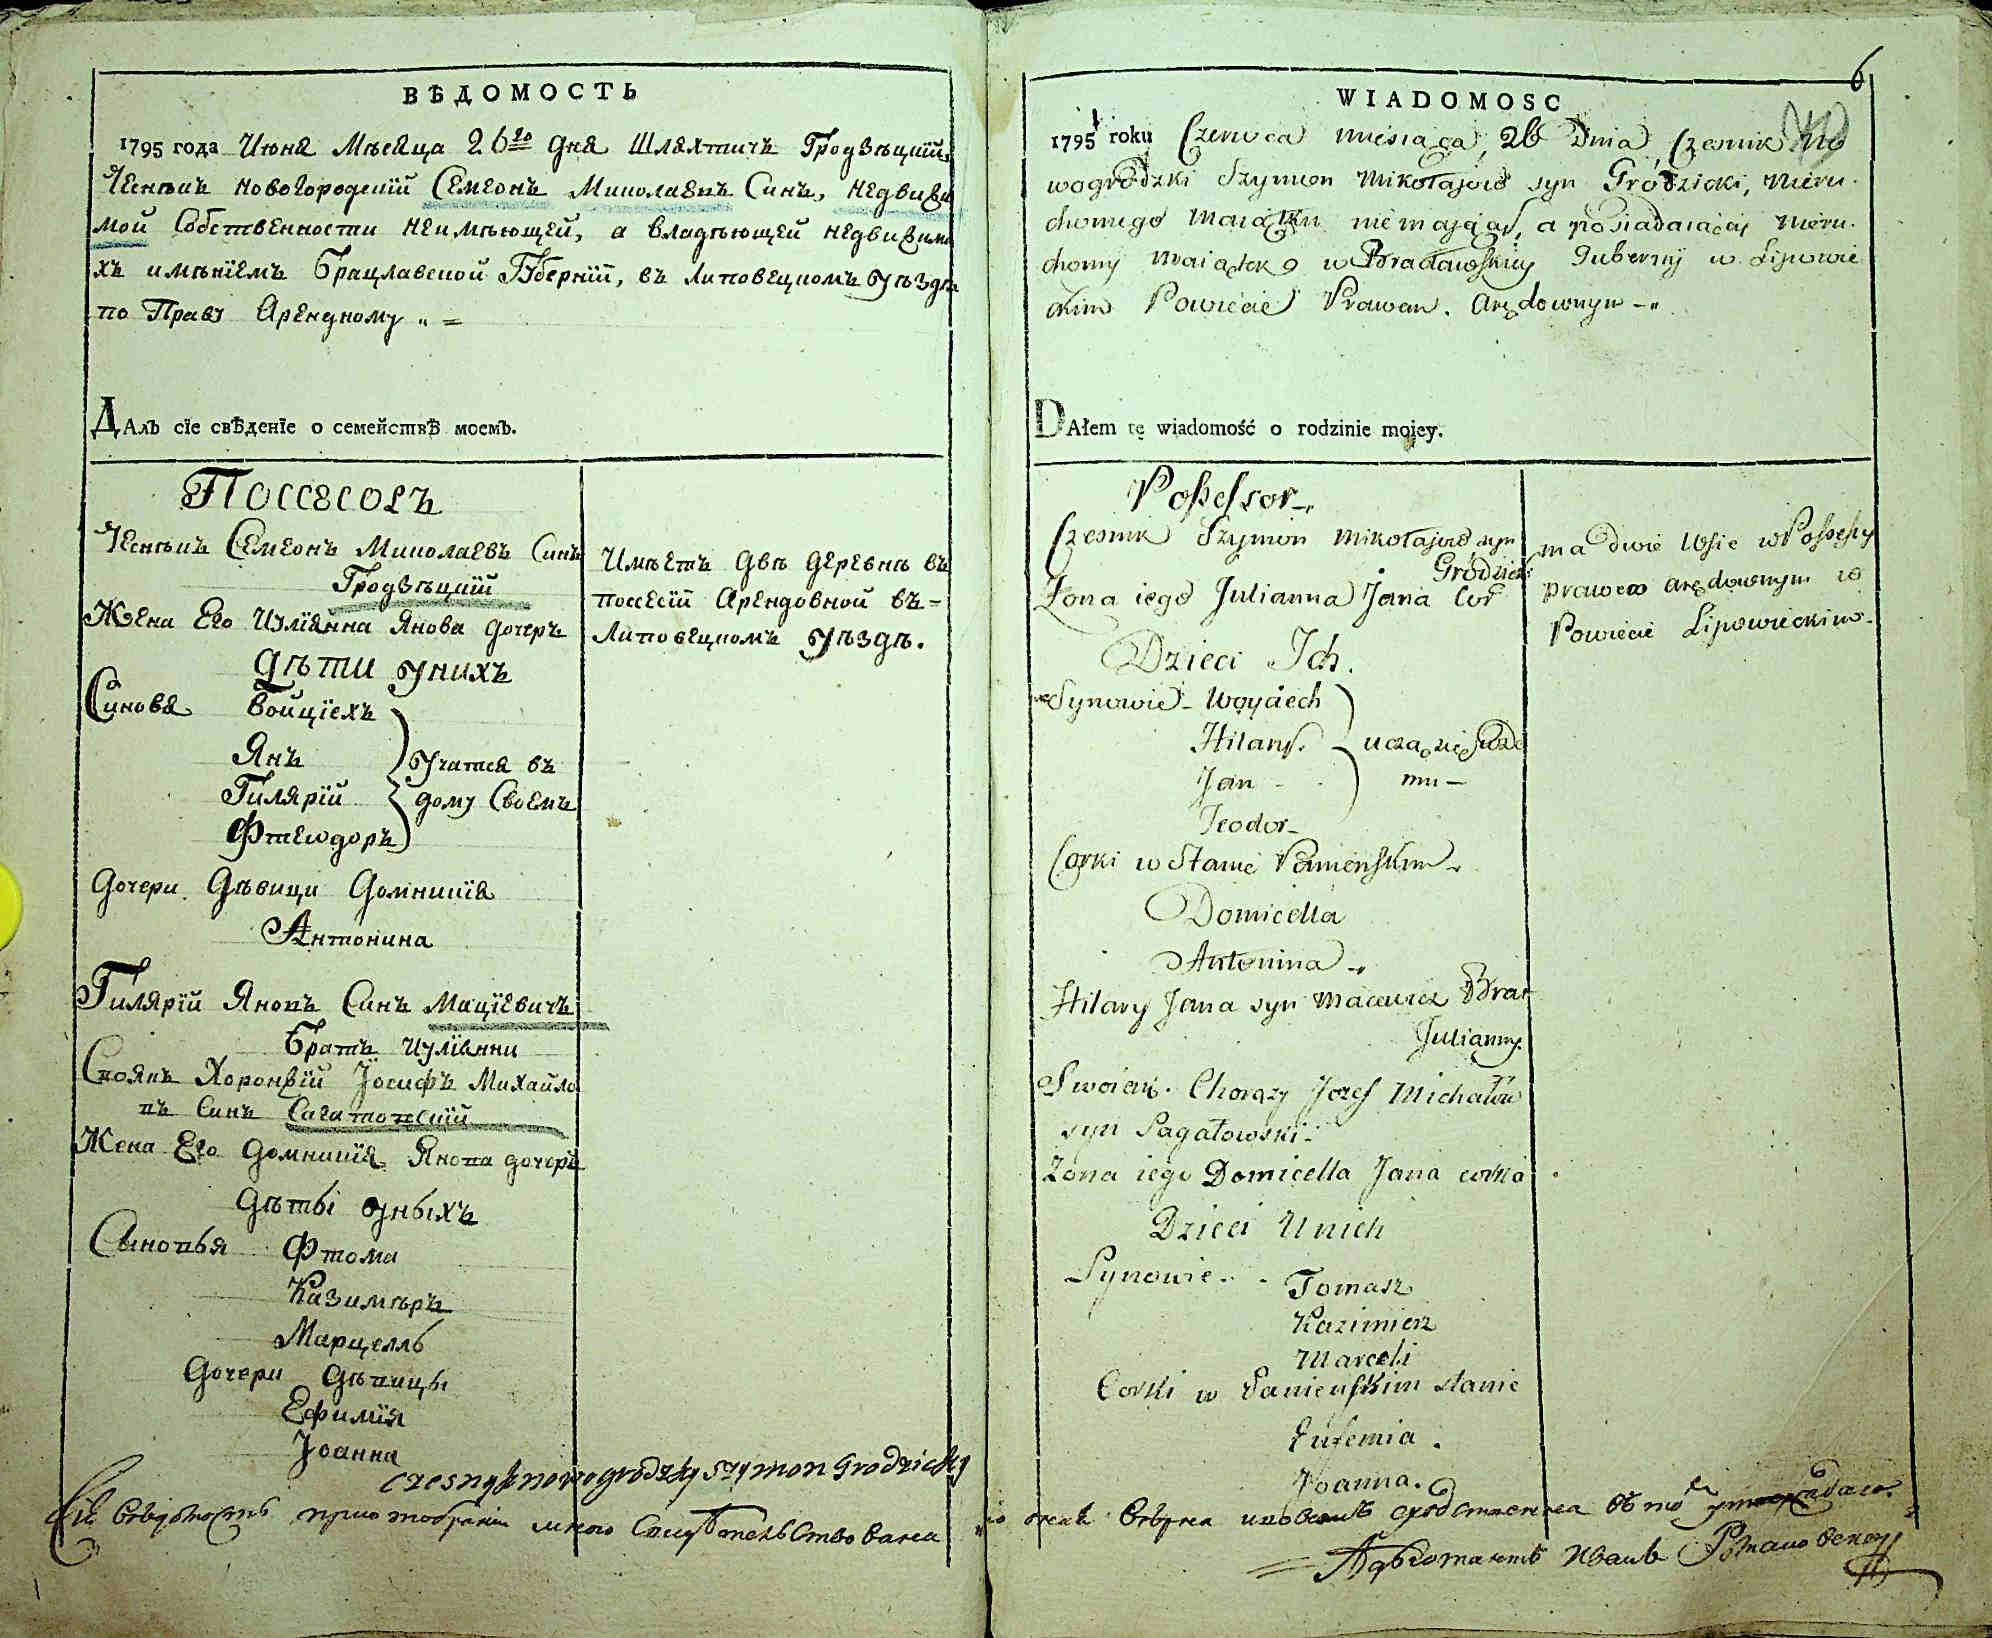 ВѢДОМОСТЬ
1795 года Июня Мѣсяца 26го дня Шляхтичъ Гродзѣцкій
Чесникъ Новогородскій Семеонъ Миколаевъ Синъ, недвижи
мой Собственности неимѣющей, а владѣющей недвижимы
хъ имѣніемъ Брацлавской Губерніи, въ Липовецкомъ уѣздѣ
по Праву Арендному
ДАлъ сіе свѣденіе о семействѣ моемъ.
Поссесоръ
Чесникъ Семеонъ Миколаевъ Синъ
Гродзѣцкій
Жена Его Иуліянна Янова дочеръ
Дѣти у нихъ
Синовя Войціехъ
Янъ
Гилярій
Фтеодоръ
Учатся въ
дому Своемъ
Дочери Дѣвици Домникія
Антонина
Гилярій Яновъ Синъ Маціевичъ
Братъ Иуліянни
Своякъ Хоронжій Іосифъ Михайло
въ Синъ Сагатовскій
Жена Его Домникія Янова дочеръ
Дѣтьі у ныхъ
Сыновья Фтома
Казимѣръ
Марцелль
Дочери Дѣвицы
Ефимія
Іоанна
Имѣетъ двѣ деревнѣ въ
поссесіи Арендовной въ
Липовецкомъ уѣздѣ.
czesnyk nowogrodzky Szymon Grodzicky
6
WIADOMOSC
1795 roku Czerwca miesiąca, 26 Dnia, Czesnik No
wogrodzki Szymon Mikołajow syn Grodzicki, Nieru
chomego maiątku niemaiący, a posiadaiący nieru
chomy maiątek w Bracławskiey Gubernij w Lipowie
ckim Powiecie Prawem Arędownym
DAłem tę wiadomość o rodzinie mojey.
Possessor
Czesnik Szymon Mikołajow syn
Grodzicki
Zona iego Julianna Jana Cor
Dzieci Ich.
Synowie Woyciech
Hilary
Jan
Teodor
uczą się w Do
mu
Corki w Stanie Panienskim
Domicella
Antonina
Hilary Jana syn Macewicz Brat
Julianny.
Swoiak. Chorąży Jozef Michałow
syn Sagatowski
Zona iego Domicella Jana corka
Dzieci U nich
Synowie
Tomasz
Kazimierz
Marceli
Corki w Panienskim stanie
Eufemia.
Joanna.
ma dwie Wsie w Possessy
prawem arędownym w
Powiecie Lipowieckim
Сія вѣдомость
Адвокатъ Иванъ Романовскій